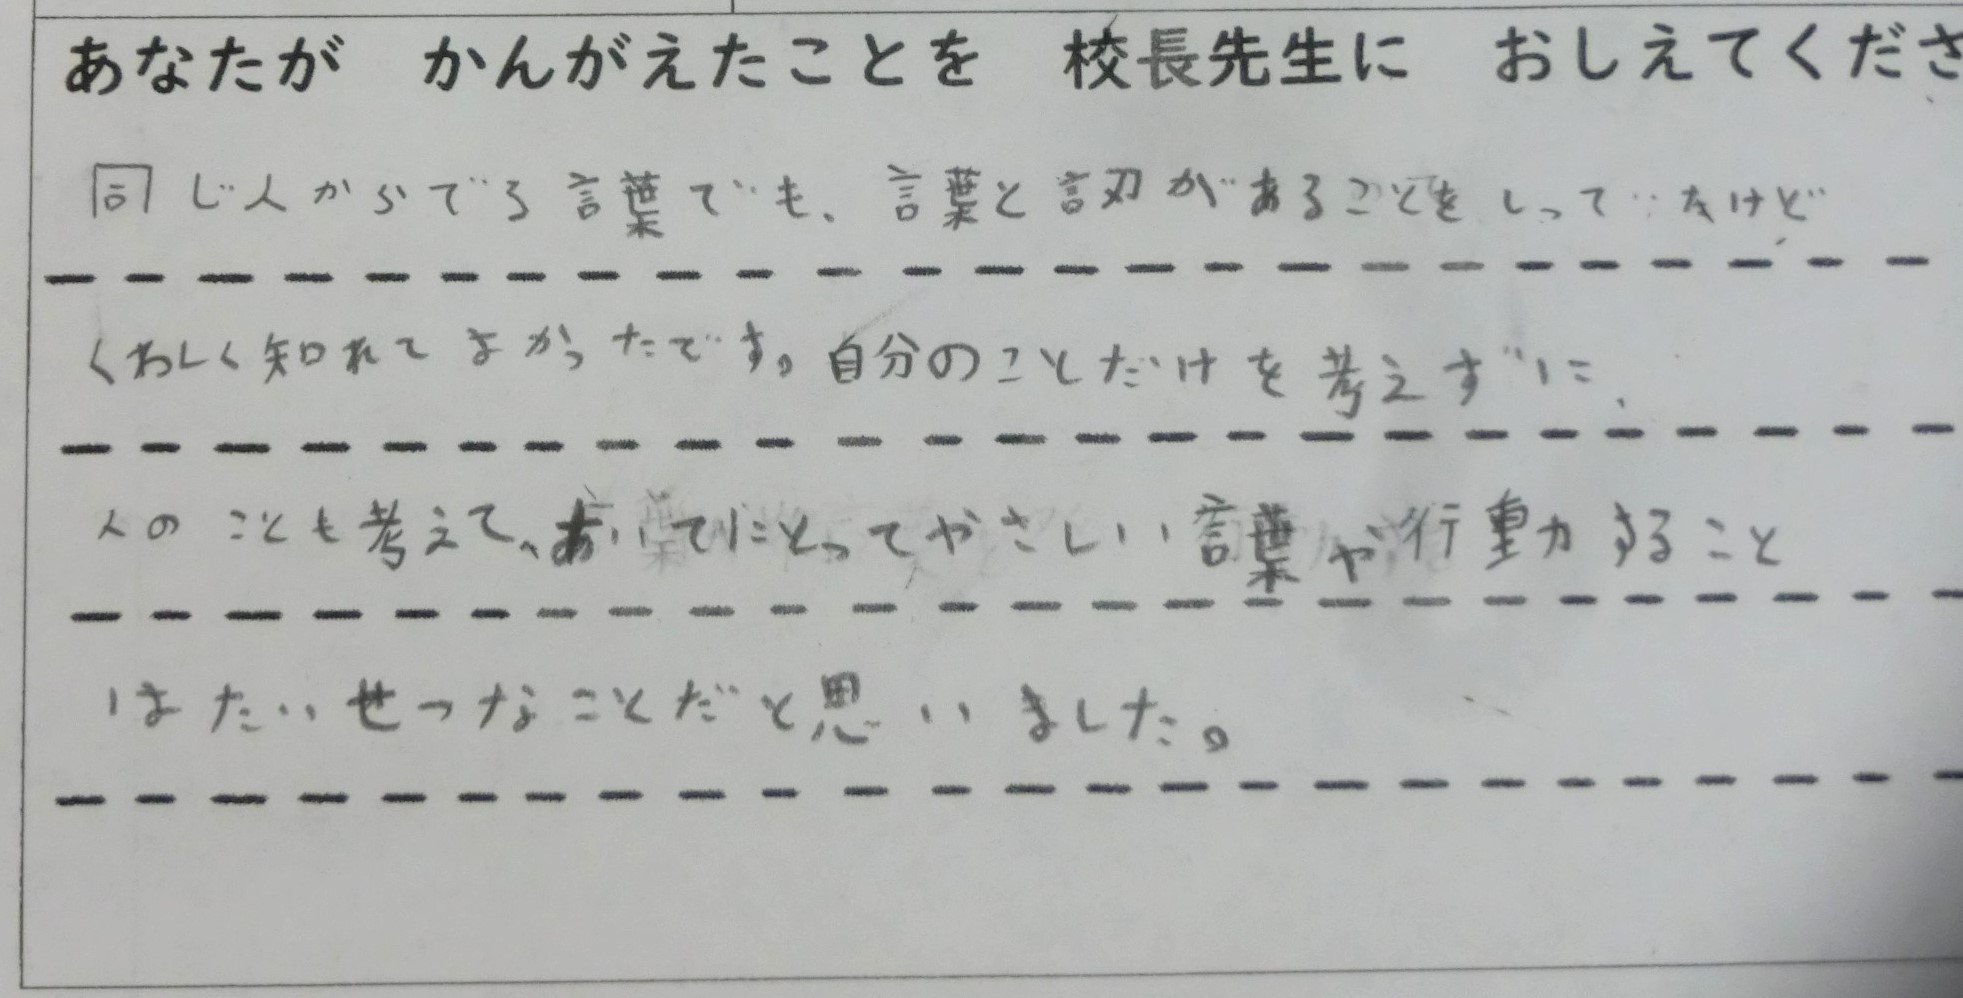 あなたが　かんがえたことを　校長先生に　おしえてくださ
同じ人からでる言葉でも、言葉と言刃があることをしっていたけど
くわしく知れてよかったです。自分のことだけを考えずに、
人のことも考えて、あいてにとってやさしい言葉や行動すること
はたいせつなことだと思いました。